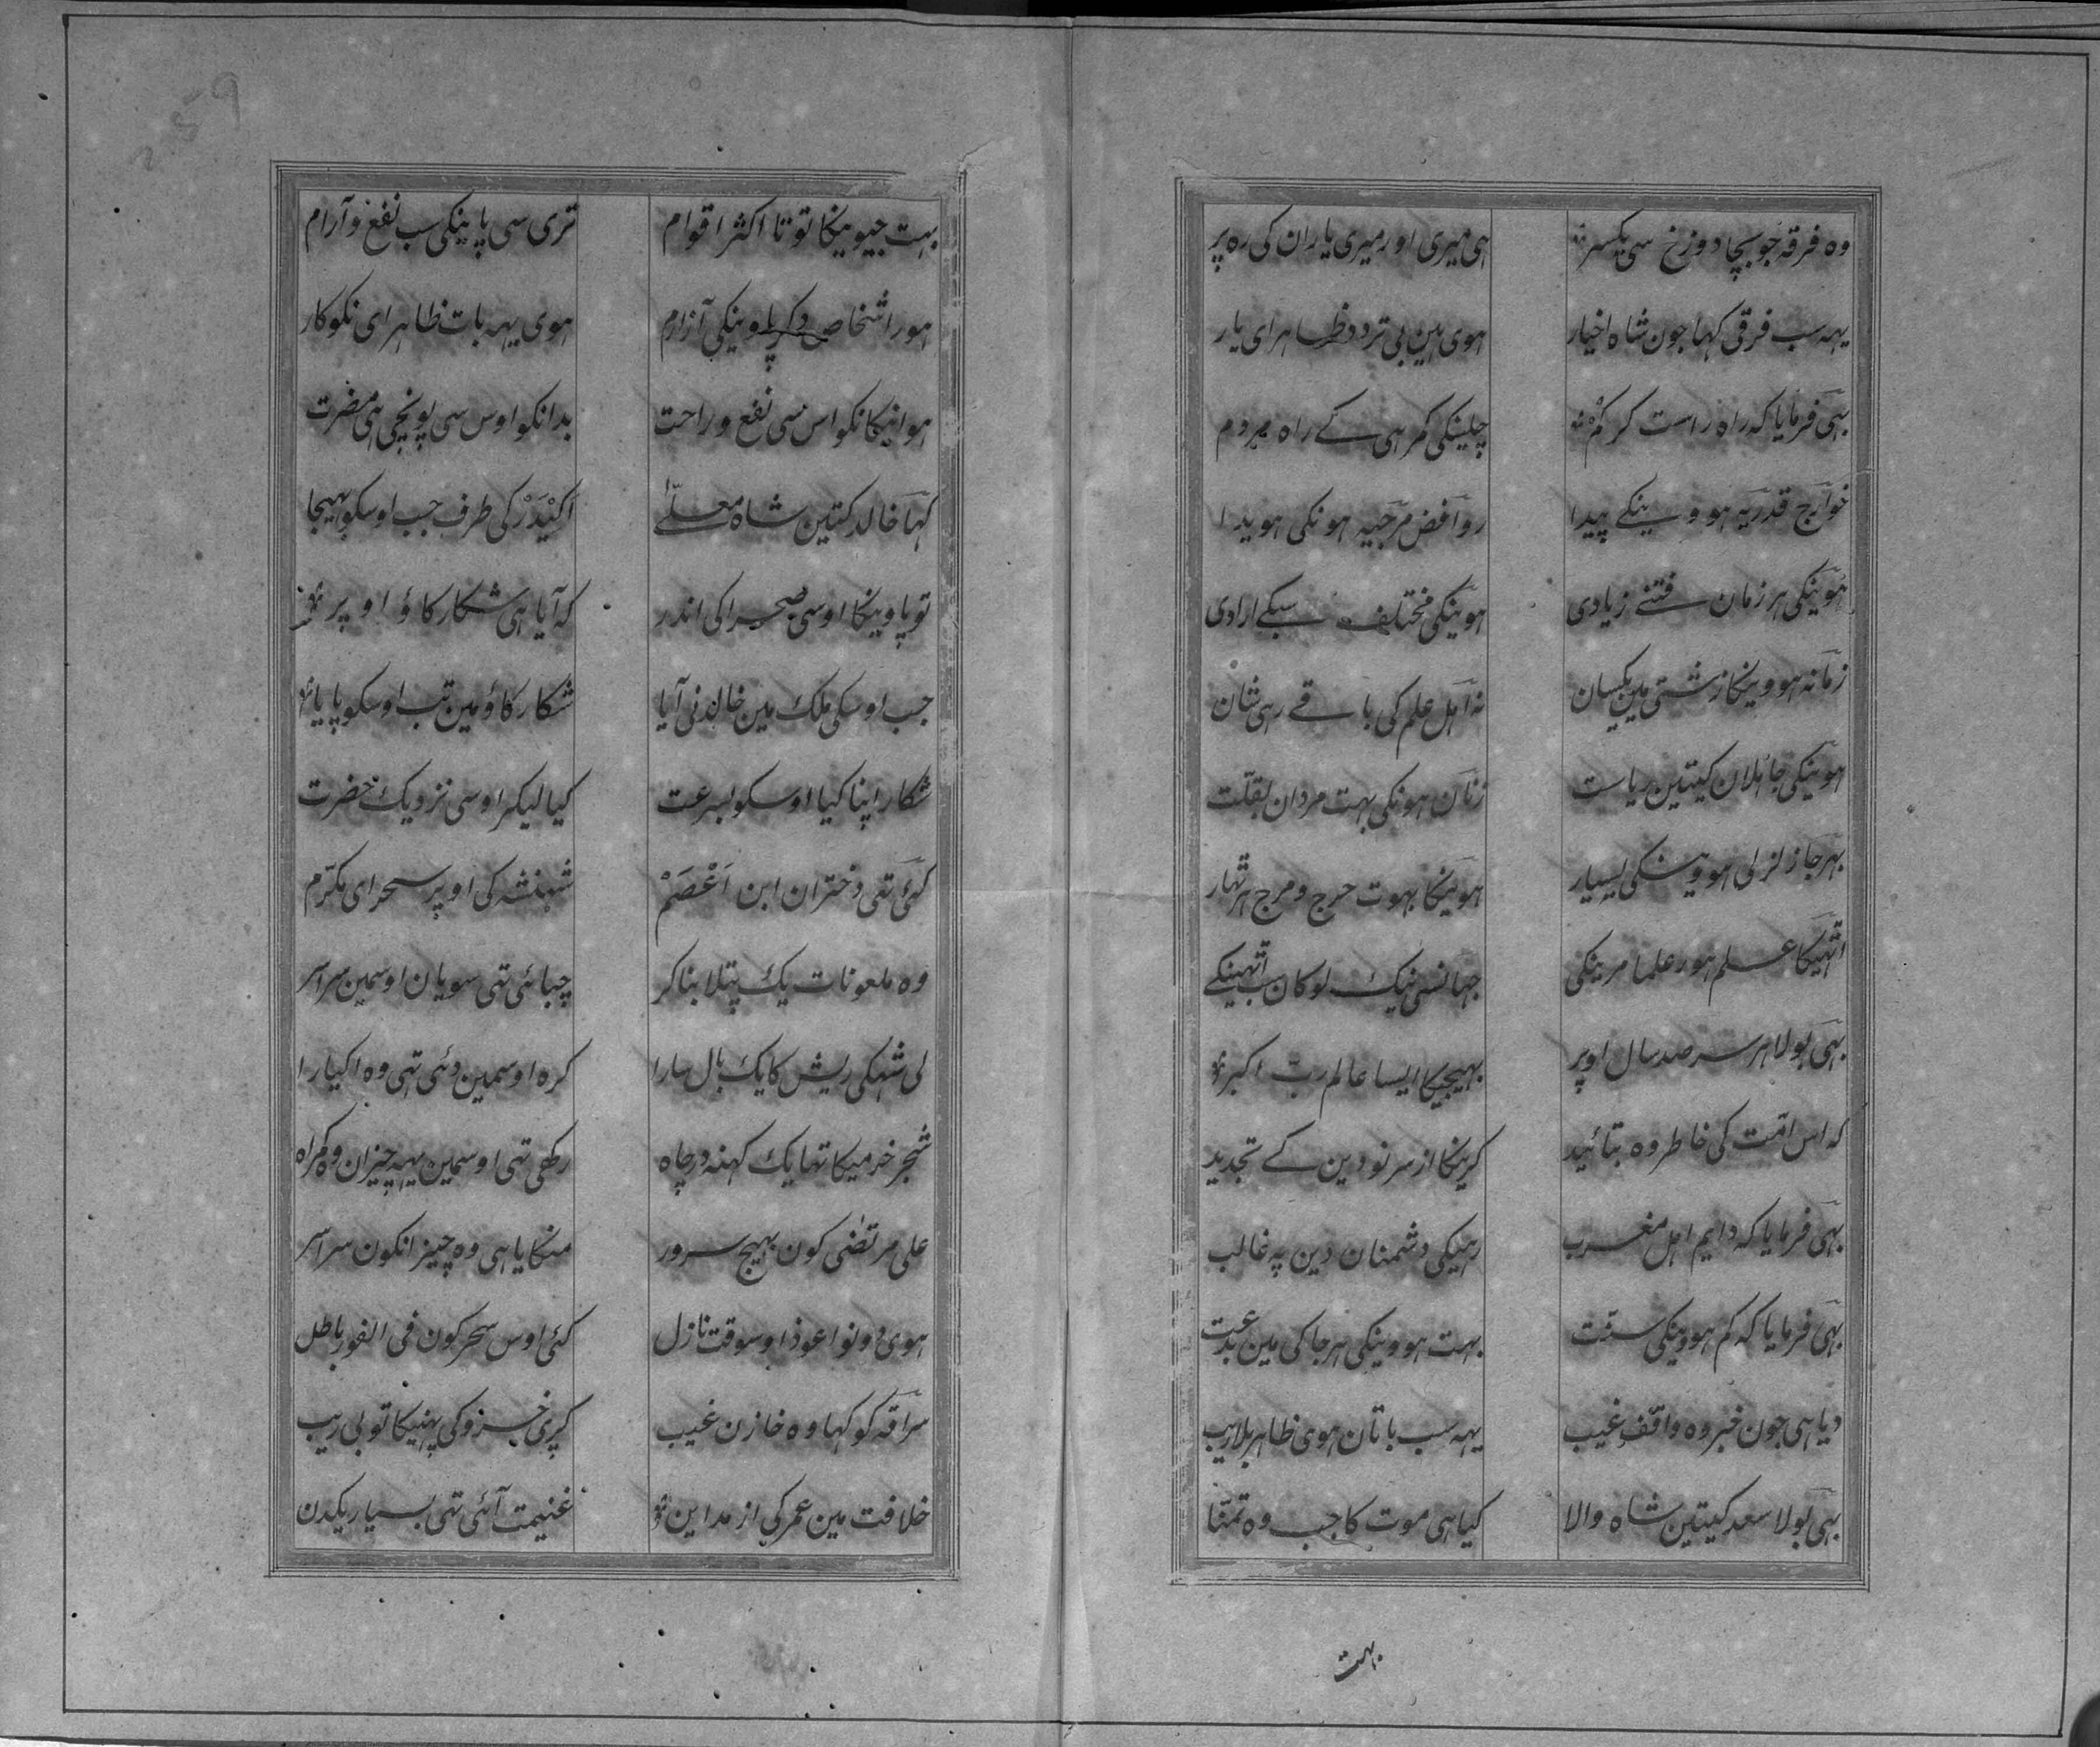 وہ فرقہ جو بچا دوزخ سی یکسر ہی میری اور میری یاران کی رہ پر
یہہ سب فرقی کہا جون شاہ اخیار ہوی ہین بی تردد ظاہر ای یار
بہی فرمایا کہ راہ راست کر گم چلینکی کمرہی کے راہ مردم
خوارج قدریہ ہووینکے پیدا روافض مرجیہ ہونکی ہویدا
ہوینکی ہر زمان فتنے زیادی ہوینکی مختلف سبکے ارادی
زمانہ ہووینکا زشتی مین یکسان نہ اہل علم کی باقے رہی شان
ہوینکی جاہلان کیتین ریاست زنان ہونکی بہت مردان بقلّت
بہر جا زلزلی ہووینکی بسیار ہوینکا بہوت ہرج و مرج
اتہیکا علم ہور علما مرینکی جہانسی نیک لوکان سب اتہینکے
بہی بولا ہر سر صد سال اوپر بہیجیکا ایسا عالم ربّ اکبر
کہ اس امّت کی خاطر وہ بتائید کریکا از سر نو دین کے تجدید
بہی فرمایا کہ دایم اہل مغرب رہیکی دشمنان دین پہ غالب
بہی فرمایا کہ کم ہووینکی سنّت بہت ہووینکی ہر جاکی مین بدعت
دیا ہی جون خبر وہ واقف غیب یہہ سب باتان ہوی ظاہر بلاریب
بہی بولا سعد کیتین شاہ والا کیا ہی موت کا جب وہ تمنّا
بہت
بہت جیوینکا تو تا اکثر اقوام تری سی پاینکی سب نفع و آرام
ہور اشخاص دکر پاوینکی آزارم ہوی یہہ بات ظاہر ای نکوکار
ہوا نیکانکو اس سی نفع و راحت بدانکو اوس سی پونچی ہی مضرت
کہا خالد کتین شاہ معلّے اکیدر کی طرف جب اوسکو بہیجا
تو پاوینکا اوسی صحرا کی اندر کہ آیا ہی شکار کاؤ اوپر
جب اوسکی ملک مین خالد نی آیا شکار کاؤ مین تب اوسکو پایا
شکار اپنا کیا اوسکو بسرعت کیا لیکر اوسی نزدیک حضرت
کئی تہی دختران ابن اَعْصَمْ شہنشہ کی اوپر سحر ای مکرّم
وہ ملعونات یک پتلا بنا کر چبائی تہی سویان اوسمین سراسر
لی شہکی ریش کا یک بال سارا کرہ اوسمین دئی تہی وہ اکیارا
شجر خرمیکا تہا یک کہنہ در چاہ رکھی تہی اوسمین یہہ چیزان وہ کمراہ
علی مرتضٰی کون بہیج سرور منکایا ہی وہ چیز انکون سراسر
ہوی دونو اعوذ اوسوقت نازل کئی اوس سحر کون فی الفور باطل
سراقہ کو کہا وہ خازن غیب کپری خسرو کی پہنیکا تو بی ریب
خلافت مین عمر کی از مداین غنیمت آئی تہی بسیار یکدن